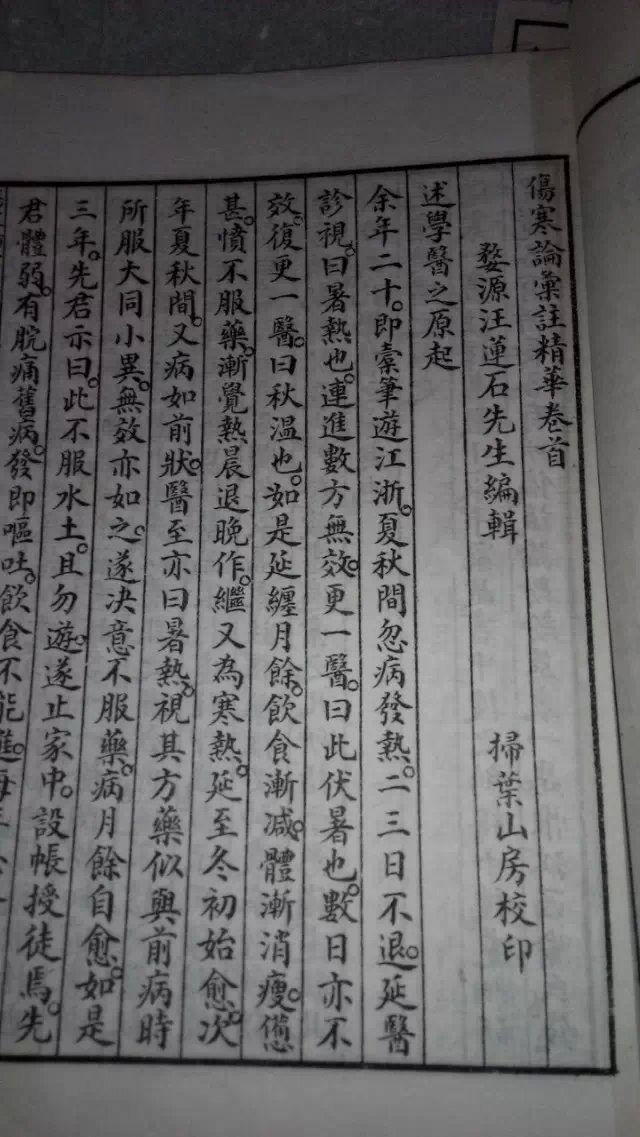 傷寒論彙註精華卷首
婺源汪蓮石先生編輯 掃葉山房校印
述學醫之原起
余年二十。即橐筆遊江浙。夏秋間忽病發熱。二三日不退。延醫
診視。曰暑熱也。連進數方無效。更一醫。曰此伏暑也。數日亦不
效。復更一醫。曰秋温也。如是延纏月餘。飲食漸減。體漸消瘦。憊
甚。憤不服藥。漸覺熱晨退晚作。繼又為寒熱。延至冬初始愈。次
年夏秋間。又病如前狀。醫至亦曰暑熱。視其方藥似與前病時
所服大同小異。無效亦如之。遂决意不服藥。病月餘自愈。如是
三年。先君示曰。此不服水土。且勿遊。遂止家中。設帳授徒焉。先
君體弱。有脘痛舊病。發即嘔吐。飲食不能進。每